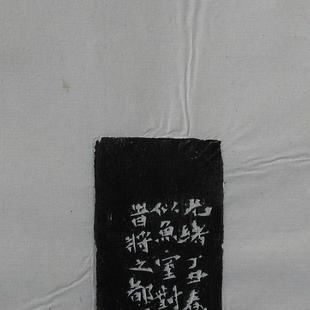 光緒丁丑春
似魚室對
昔將之都